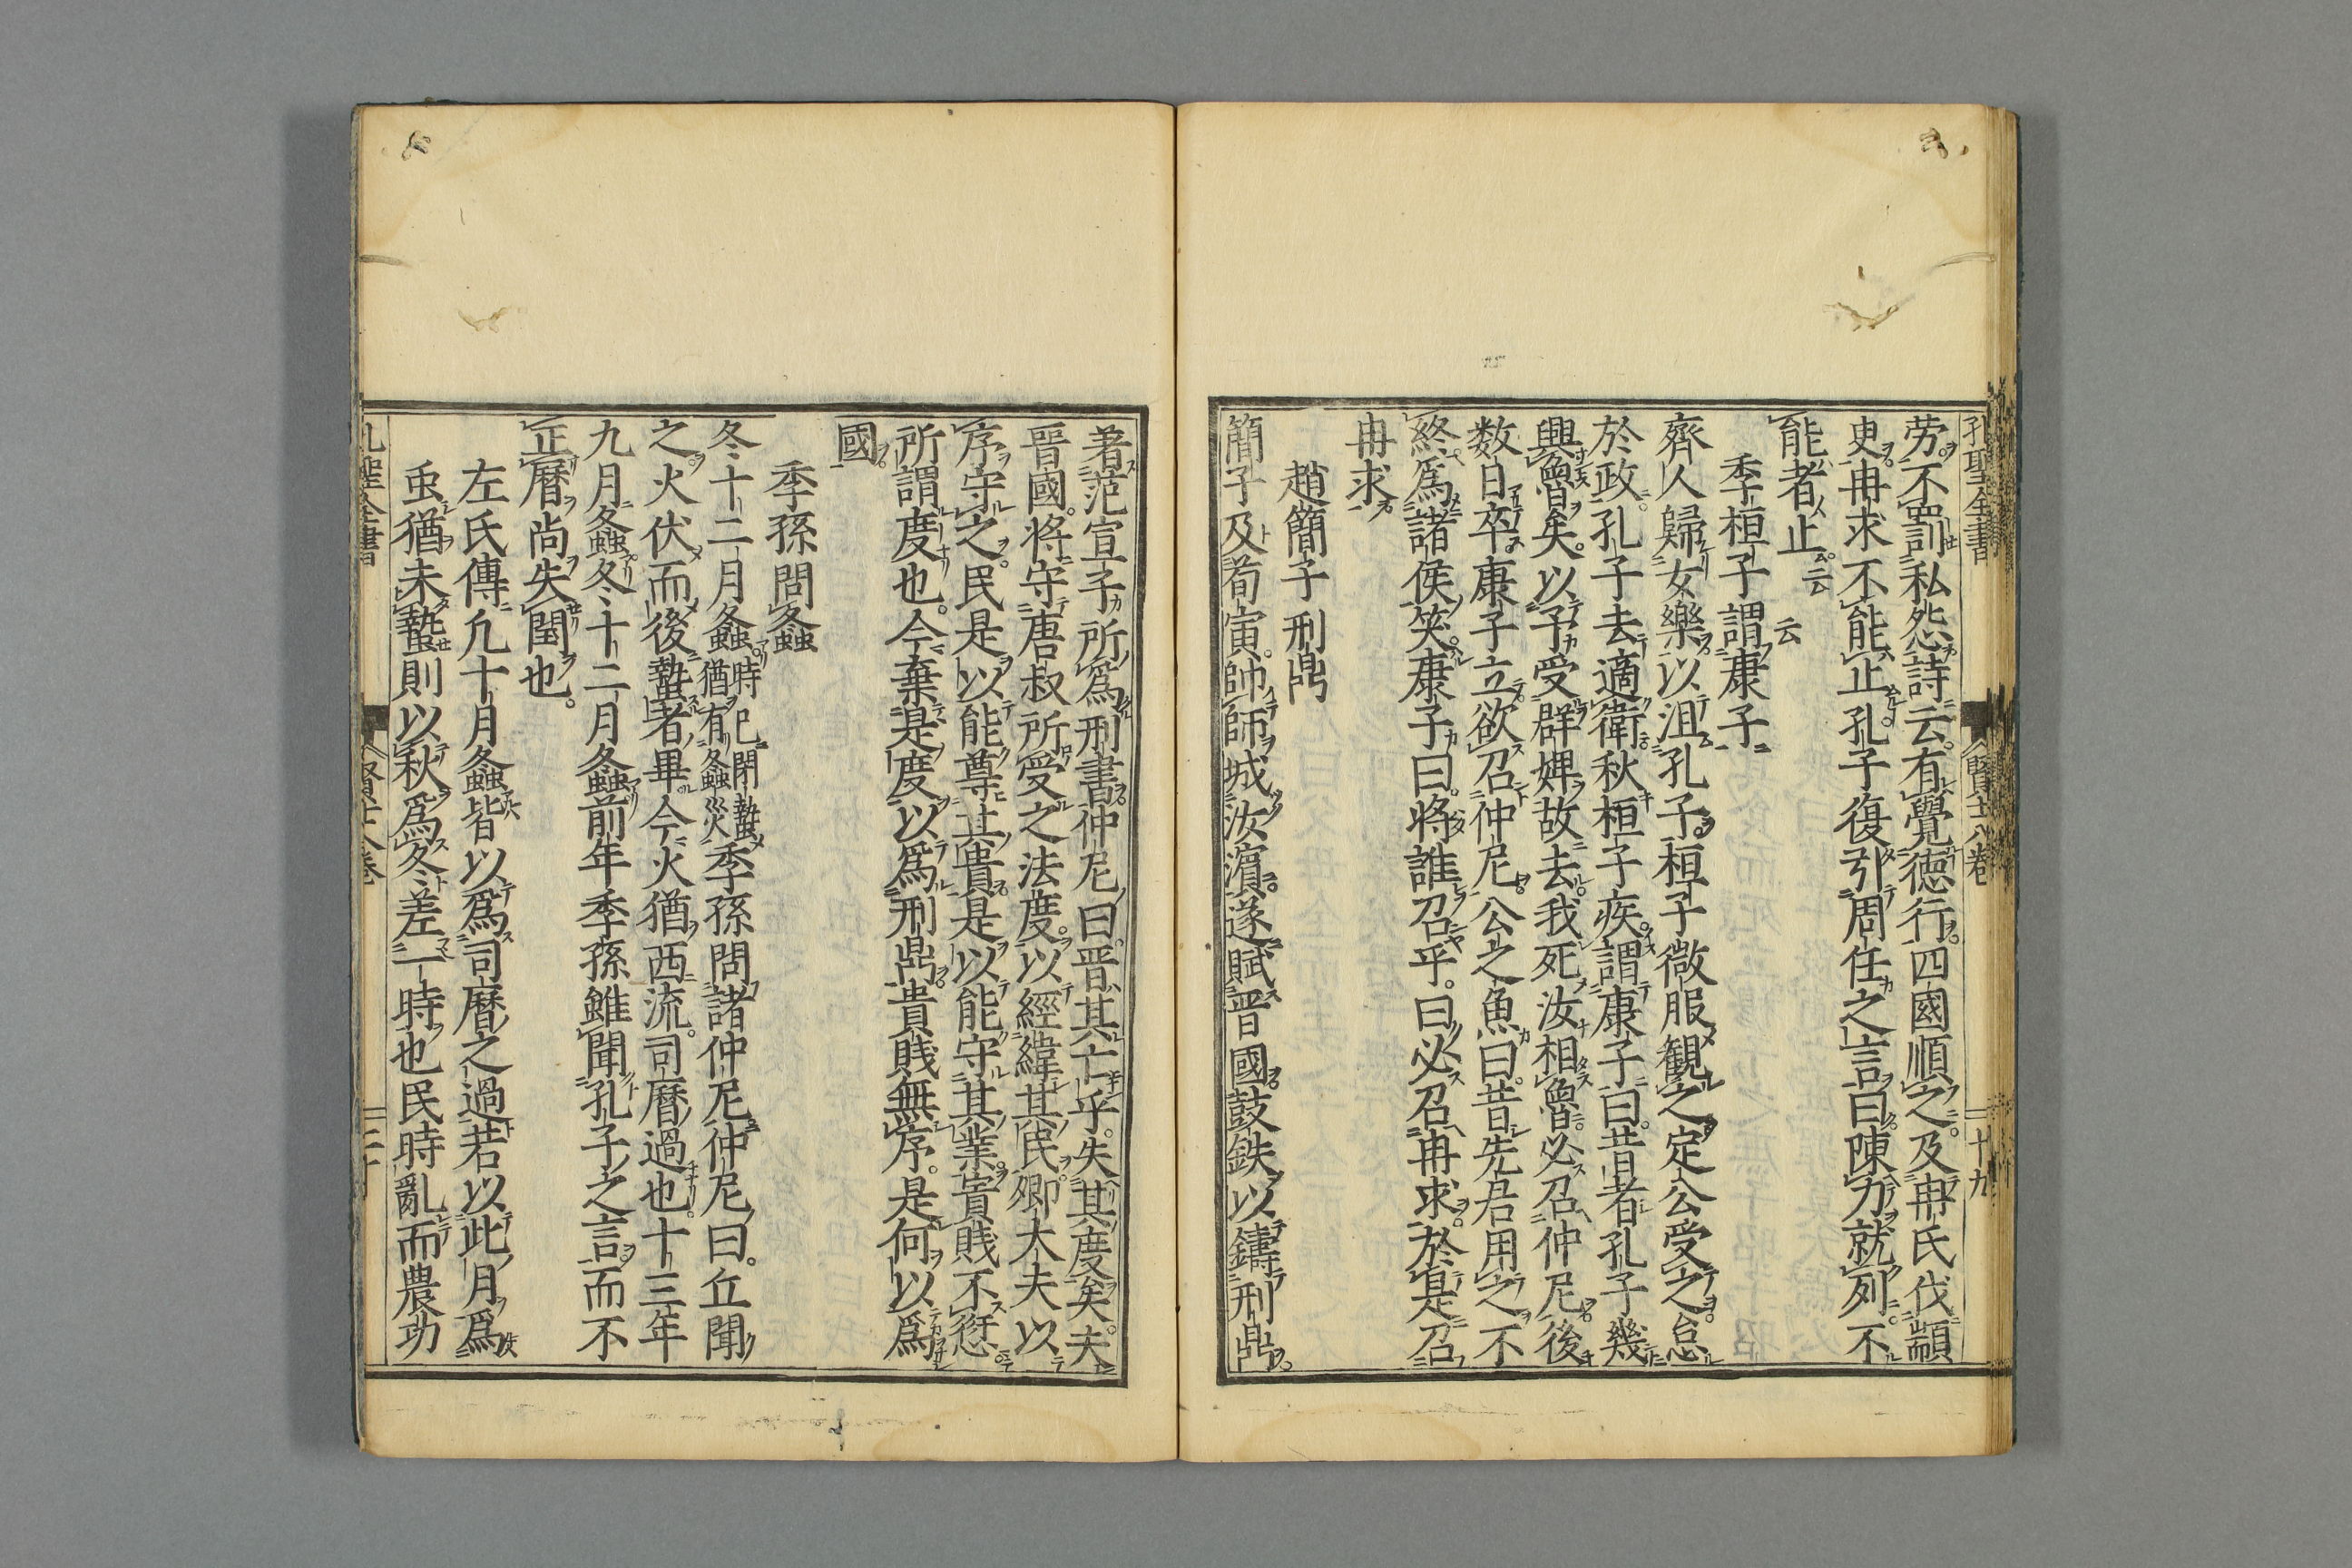 孔聖全書 賢十八卷 十九
労不罰私怨詩云有覺徳行四國順之及冉氏伐顓
臾冉求不能止孔子復引周任之言曰陳力就列不
能者止云云
季桓子謂康子
齊人歸女樂以沮孔子桓子微服觀之定公受之怠
於政孔子去適衛秋桓子疾謂康子曰昔者孔子幾
興魯矣以予受群婢故去我死汝相魯必召仲尼後
数日卒康子立欲召仲尼公之魚曰昔先君用之不
終爲諸侯笑康子曰將誰召乎曰必召冉求於是召
冉求
趙簡子刑鼎
簡子及荀寅帥師城汝濵遂賦晋國鼓鉄以鑄刑鼎
著范宣子所爲刑書仲尼曰晋其亡乎失其度矣夫
晋國将守唐叔所受之法度以經緯其民卿大夫以
序守之民是以能尊其貴是以能守其業貴賎不愆
所謂度也今棄是度以爲刑鼎貴賎無序是何以爲
國
季孫問螽
冬十二月螽時已閉蟄猶有螽災季孫問諸仲尼仲尼曰丘聞
之火伏而後蟄者畢今火猶西流司曆過也十三年
九月螽冬十二月螽前年季孫雖聞孔子之言而不
正曆尚失閏也
左氏傳凡十月螽皆以爲司曆之過若以此月爲
虫猶未蟄則以秋爲冬差一時也民時亂而農功
孔聖全書 賢十八卷 二十